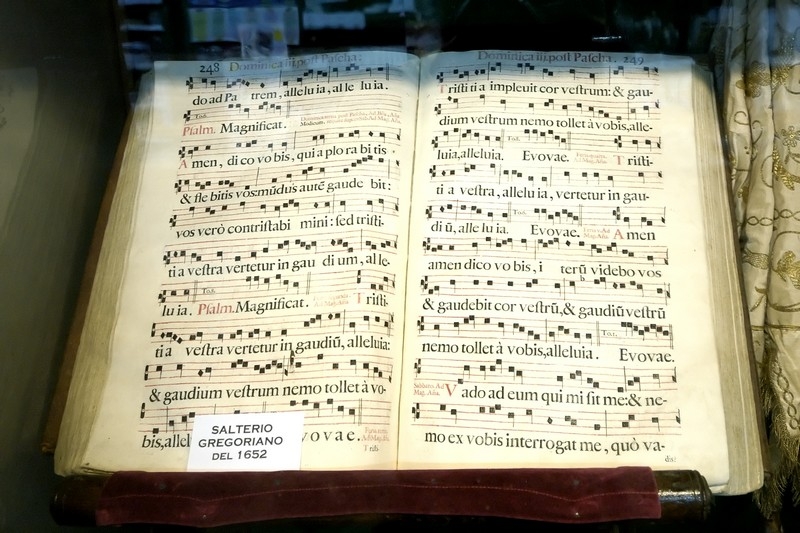 248 Dominica iij. post Pascha.
do ad Pa trem, alleluia, al le luia.
Ton.
Psalm. Magnificat.
A men, di co vo bis, qui a plo ra bi tis
& fle bitis vos: mũdus autẽ gaude bit:
vos verò contristabi mini: sed tristi-
ti a vestra vertetur in gau di um, al le-
Ton.
lu ia. Psalm. Magnificat. Tristi-
ti a vestra vertetur in gaudiũ, alleluia:
& gaudium vestrum nemo tollet à vo-
bis, allel vovae.
Tristi
SALTERIO
GREGORIANO
DEL 1652
Dominica iij. post Pascha. 249
Tristi ti a impleuit cor vestrum: & gau-
dium vestrum nemo tollet à vobis, alle-
Ton.
luia, alleluia. Evovae. Tristi-
ti a vestra, allelu ia, vertetur in gau-
Ton.
di ũ, alle lu ia. Evovae. Amen
amen dico vo bis, i terũ videbo vos
& gaudebit cor vestrũ, & gaudiũ vestrũ
Ton.
nemo tollet à vobis, alleluia. Evovae.
Sabbato. Ad Mag. Aña. Vado ad eum qui mi sit me: & ne-
mo ex vobis interrogat me, quò va-
dis: